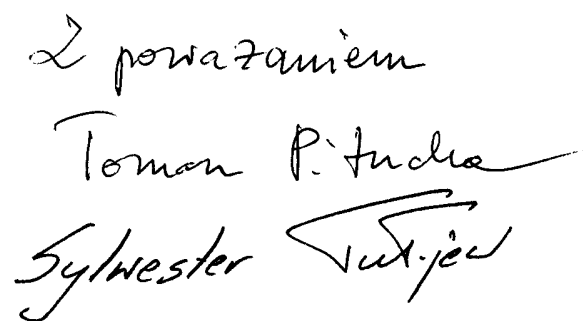 Z poważaniem
Roman Pitucha
Sylwester Tułajew